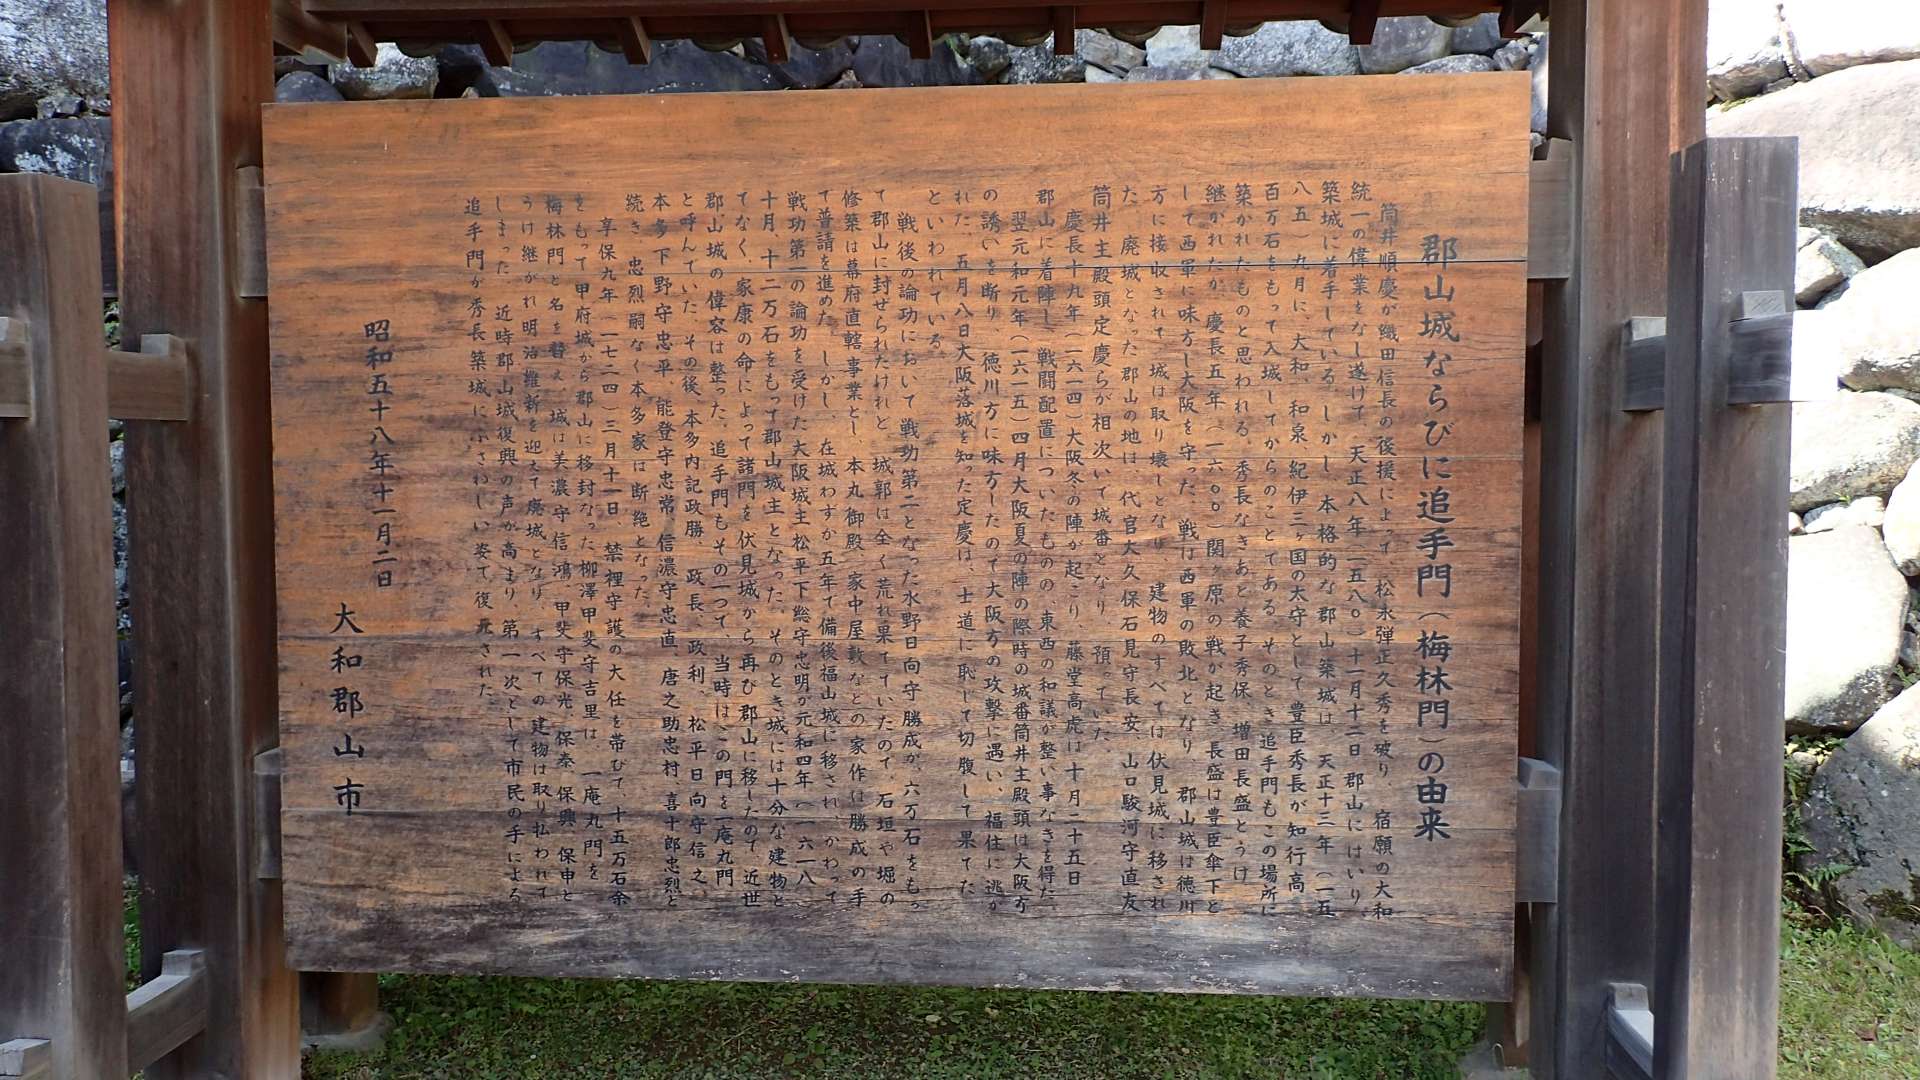 郡山城ならびに追手門（梅林門）の由来
筒井順慶が織田信長の後援によって、松永弾正久秀を破り、宿願の大和
統一の偉業をなし遂げて、天正八年（一五八〇）十一月十二日 郡山にはいり、
築城に着手している。しかし、本格的な郡山築城は、天正十三年（一五
八五）九月に、大和、和泉、紀伊三ヶ国の太守として豊臣秀長が知行高
百万石をもって入城してからのことである。そのとき追手門もこの場所に
築かれたものと思われる。秀長なきあと養子秀保、増田長盛とうけ
継がれたが、慶長五年（一六〇〇）関ヶ原の戦が起き、長盛は豊臣傘下と
して西軍に味方し大阪を守った。戦は西軍の敗北となり、郡山城は徳川
方に接収されて、城は取り壊しとなり、建物のすべては伏見城に移され
た。廃城となった郡山の地は、代官大久保石見守長安、山口駿河守直友
筒井主殿頭定慶らが相次いで城番となり、預っていた。
慶長十九年（一六一四）大阪冬の陣が起こり、藤堂高虎は十月二十五日
郡山に着陣し、戦闘配置についたものの、東西の和議が整い事なきを得た。
翌元和元年（一六一五）四月大阪夏の陣の際時の城番筒井主殿頭は大阪方
の誘いを断り、徳川方に味方したので大阪方の攻撃に遇い、福住に逃が
れた。五月八日大阪落城を知った定慶は、士道に恥じて切腹して果てた
といわれている。
戦後の論功において、戦功第二となった水野日向守勝成が、六万石をもっ
て郡山に封ぜられたけれど、城郭は全く荒れ果てていたので、石垣や堀の
修築は幕府直轄事業とし、本丸御殿、家中屋敷などの家作は勝成の手
で普請を進めた。しかし、在城わずか五年で備後福山城に移され、かわって
戦功第一の論功を受けた大阪城主松平下総守忠明が元和四年（一六一八）
十月、十二万石をもって郡山城主となった。そのとき城には十分な建物と
てなく、家康の命によって諸門を伏見城から再び郡山に移したので、近世
郡山城の偉容は整った。追手門もその一つで、当時はこの門を一庵丸門
と呼んでいた。その後、本多内記政勝、政長、政利、松平日向守信之、
本多下野守忠平、能登守忠常、信濃守忠直、唐之助忠村、喜十郎忠烈と
続き、忠烈嗣なく本多家は断絶となった。
享保九年（一七二四）三月十一日、禁裡守護の大任を帯びて、十五万石余
をもって甲府城から郡山に移封なった柳澤甲斐守吉里は、一庵丸門を
梅林門と名を替え、城は美濃守信鴻、甲斐守保光、保泰、保興、保申と
うけ継がれ明治維新を迎えて廃城となり、すべての建物は取り払われて
しまった。近時郡山城復興の声が高まり、第一次として市民の手による
追手門が秀長築城に、ふさわしい姿で復元された。
昭和五十八年十一月二日
大和郡山市